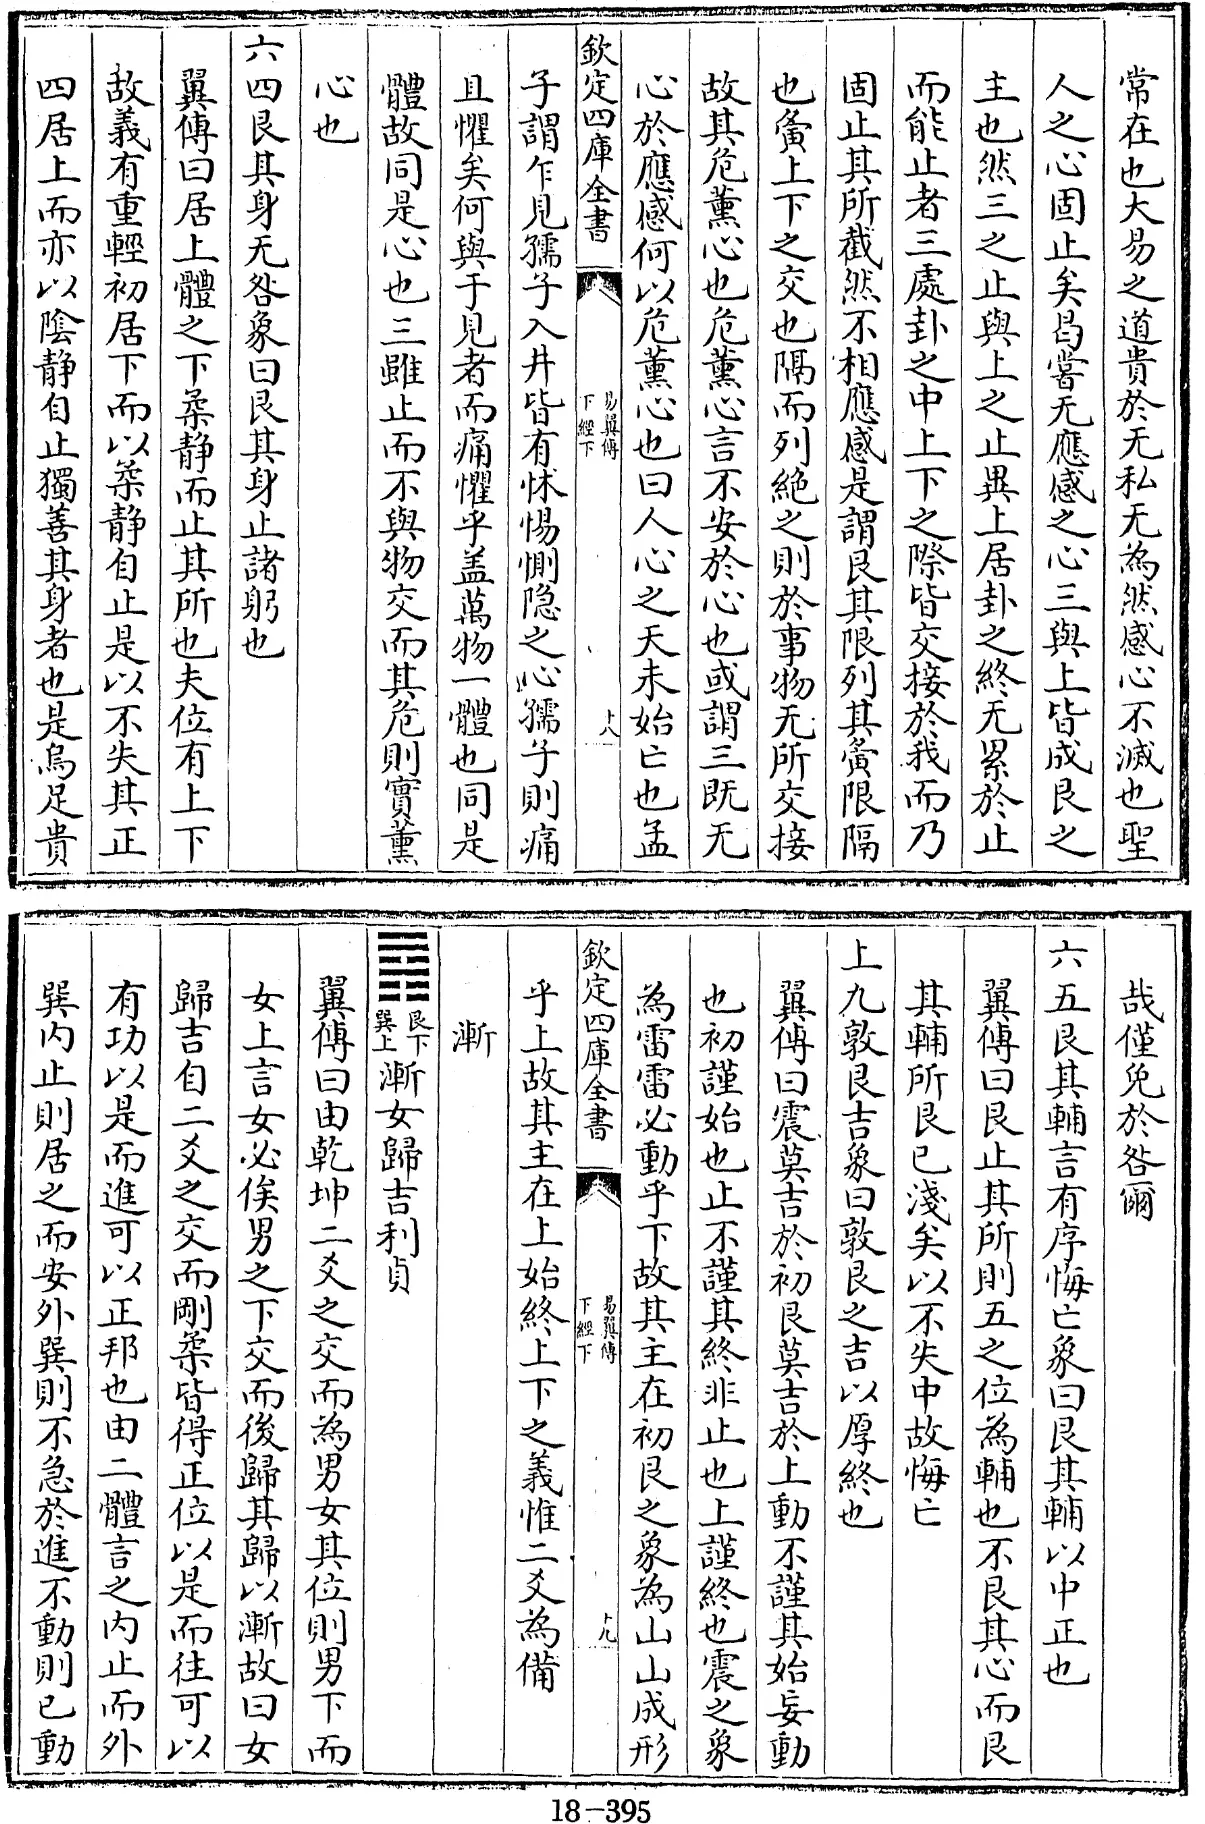 常在也大易之道貴於无私无為然感心不滅也聖
人之心固止矣曷嘗无應感之心三與上皆成艮之
主也然三之止與上之止異上居卦之終无累於止
而能止者三處卦之中上下之際皆交接於我而乃
固止其所截然不相應感是謂艮其限列其夤限隔
也夤上下之交也隔而列絶之則於事物无所交接
故其危薰心也危薰心言不安於心也或謂三既无
心於應感何以危薰心也曰人心之天未始亡也孟
欽定四庫全書
易翼傳
下經下
十八
子謂乍見孺子入井皆有怵惕惻隐之心孺子則痛
且懼矣何與于見者而痛懼乎盖萬物一體也同是
體故同是心也三雖止而不與物交而其危則實薰
心也
六四艮其身无咎象曰艮其身止諸躬也
翼傳曰居上體之下柔静而止其所也夫位有上下
故義有重輕初居下而以柔静自止是以不失其正
四居上而亦以陰静自止獨善其身者也是烏足貴
哉僅免於咎爾
六五艮其輔言有序悔亡象曰艮其輔以中正也
翼傳曰艮止其所則五之位為輔也不艮其心而艮
其輔所艮已淺矣以不失中故悔亡
上九敦艮吉象曰敦艮之吉以厚終也
翼傳曰震莫吉於初艮莫吉於上動不謹其始妄動
也初謹始也止不謹其終非止也上謹終也震之象
為雷雷必動乎下故其主在初艮之象為山山成形
欽定四庫全書
易翼傳
下經下
十九
乎上故其主在上始終上下之義惟二爻為備
漸
䷴艮下巽上漸女歸吉利貞
翼傳曰由乾坤二爻之交而為男女其位則男下而
女上言女必俟男之下交而後歸其歸以漸故曰女
歸吉自二爻之交而剛柔皆得正位以是而往可以
有功以是而進可以正邦也由二體言之内止而外
巽内止則居之而安外巽則不急於進不動則已動
18-395